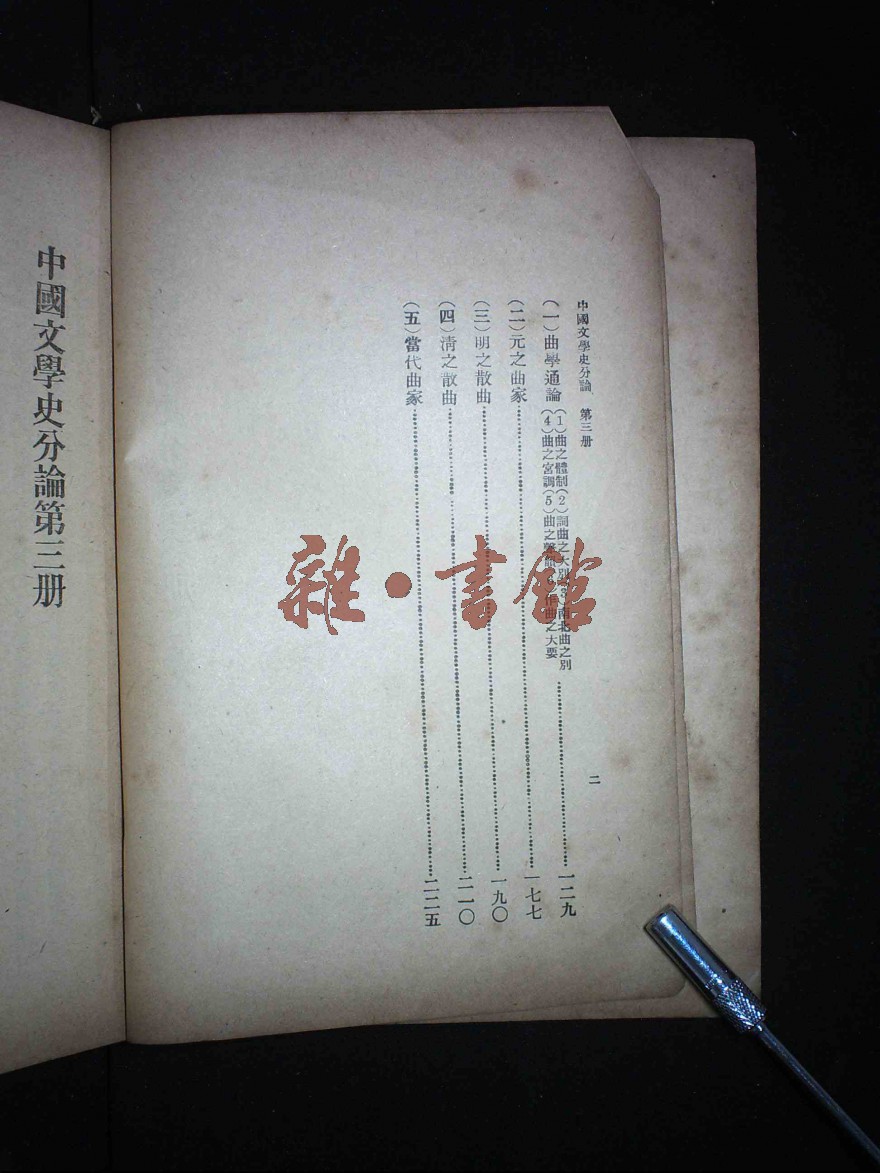 中國文學史分論 第三册
二
(一)曲學通論
(1)曲之體制(2)詞曲之大別(3)南北曲之別
(4)曲之宮調(5)曲之聲韻 作曲之大要
一二九
(二)元之曲家 一七七
(三)明之散曲 一九〇
(四)清之散曲 二一〇
(五)當代曲家 二二五
中國文學史分論第三册
雜·書館